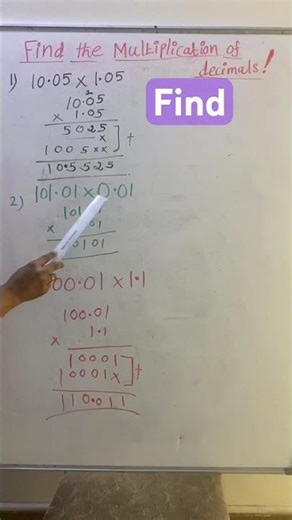 Find the Multiplication of
decimals!
Find
1) 10.05 x 1.05
2
10.05
x 1.05
5025
x
1005xx
+
10.5525
2) 101.01 x 0.01
101
x 01
0101
00.01 x 1.1
100.01
x 1.1
10001
10001x
+
110.011